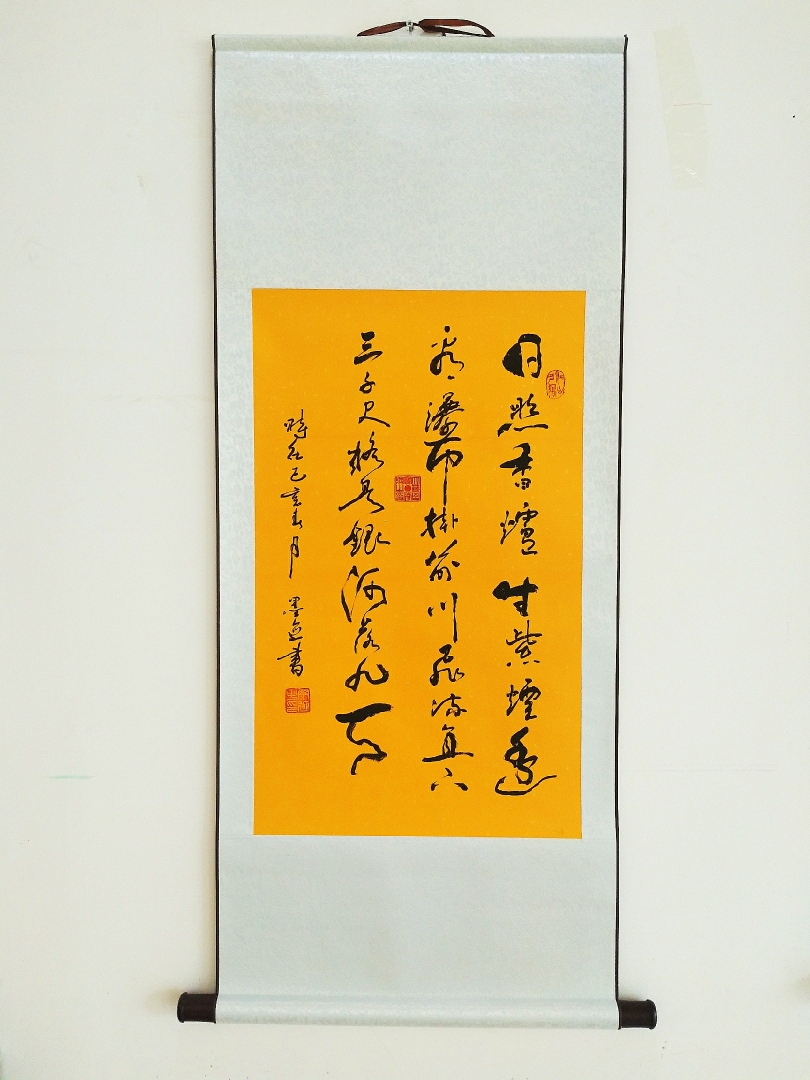 日照香爐生紫煙遙
看瀑布掛前川飛流直下
三千尺疑是銀河落九天
時在己亥春月 墨 書